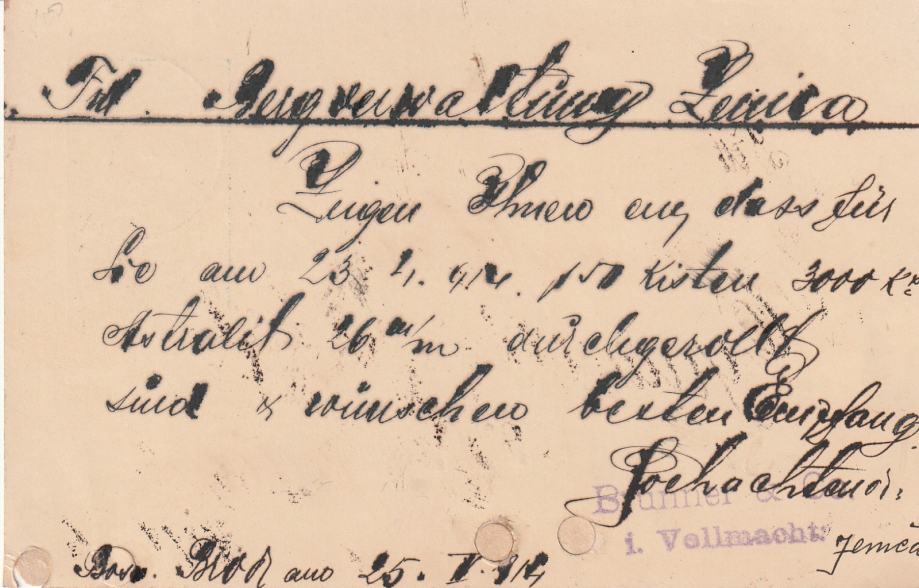 Bergverwaltung Zenica
Zeigen Ihnen an, dass für
Sie am 23. 914. 150 Kisten 3000 Kg
Astralit 26 m/m durchgerollt
sind & wünschen besten Empfang
Hochachtend
Brunner & C
i. Vollmacht:
Zenica
Bosn. Brod am 25. 914